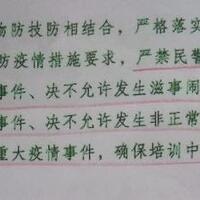 物防技防相结合，严格落实
防疫情措施要求，严禁民警
事件、决不允许发生滋事闹
事件、决不允许发生非正常
重大疫情事件，确保培训中